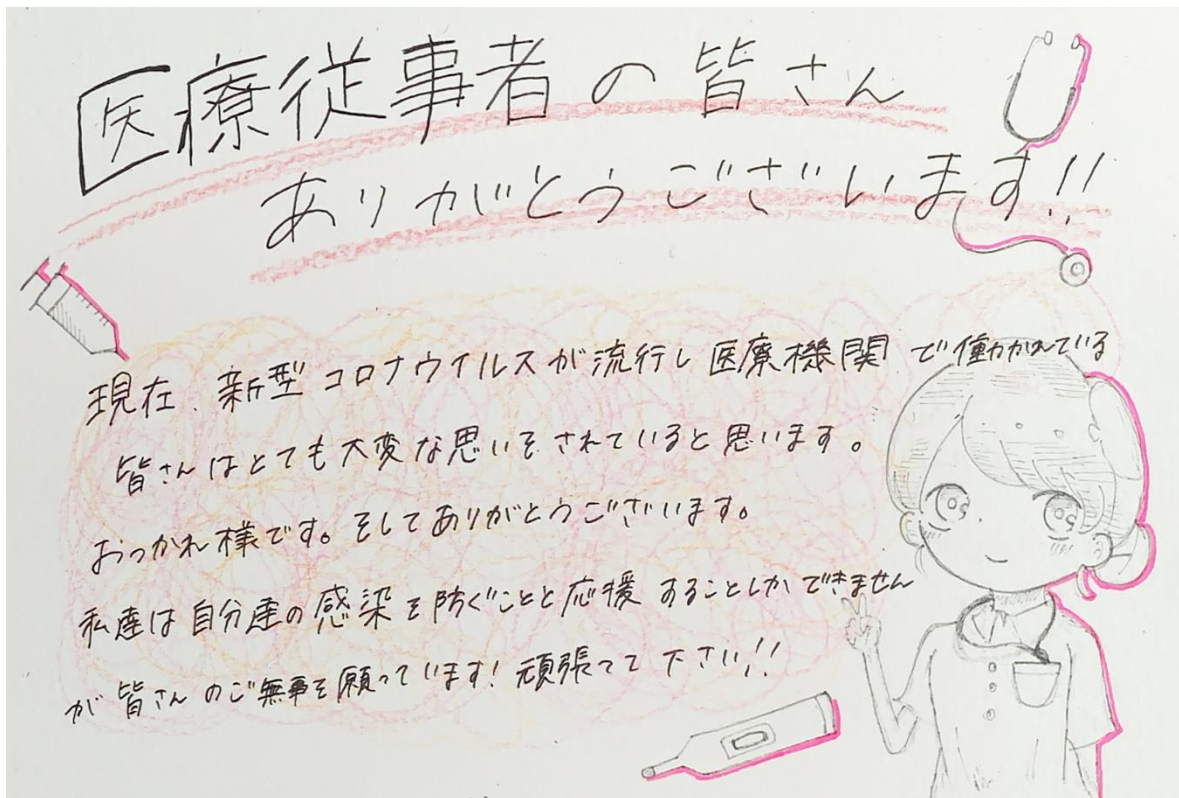 医療従事者の皆さん
ありがとうございます!!
現在、新型コロナウイルスが流行し医療機関で働かれている
皆さんはとても大変な思いをされていると思います。
おつかれ様です。そしてありがとうございます。
私達は自分達の感染を防ぐことと応援することしかできません
が皆さんのご無事を願っています!頑張って下さい!!